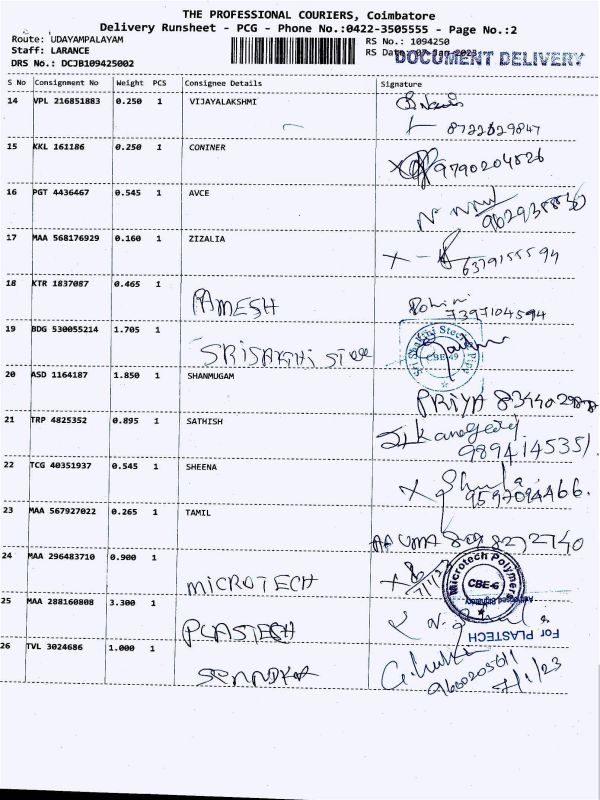 THE PROFESSIONAL COURIERS, Coimbatore
Delivery Runsheet - PCG - Phone No.:0422-3505555 - Page No.:2
Route: UDAYAMPALAYAM
RS No.: 1094250
Staff: LARANCE
RS Date: 07-Jan-2023
DOCUMENT DELIVERY
DRS No.: DCJB109425002
S No Consignment No Weight PCS Consignee Details Signature
14 VPL 216851883 0.250 1 VIJAYALAKSHMI
8722829847
15 KKL 161186 0.250 1 CONINER
9790204826
16 PGT 4436467 0.545 1 AVCE
17 MAA 568176929 0.160 1 ZIZALIA
6379155594
18 KTR 1837087 0.465 1 RAMESH
7397104594
19 BDG 530055214 1.705 1 SRISAKTHI STEEL
Sri Shakthi Steel
CBE-49
20 ASD 1164187 1.850 1 SHANMUGAM
PRIYA
21 TRP 4825352 0.895 1 SATHISH
9894145351
22 TCG 40351937 0.545 1 SHEENA
23 MAA 567927022 0.265 1 TAMIL
UMA
24 MAA 296483710 0.900 1 MICROTECH
7/1/23
Microtech Polymers
CBE-6
25 MAA 288160808 3.300 1 PLASTECH
For PLASTECH
Authorised Signatory
26 TVL 3024686 1.000 1
9600205611
7/1/23